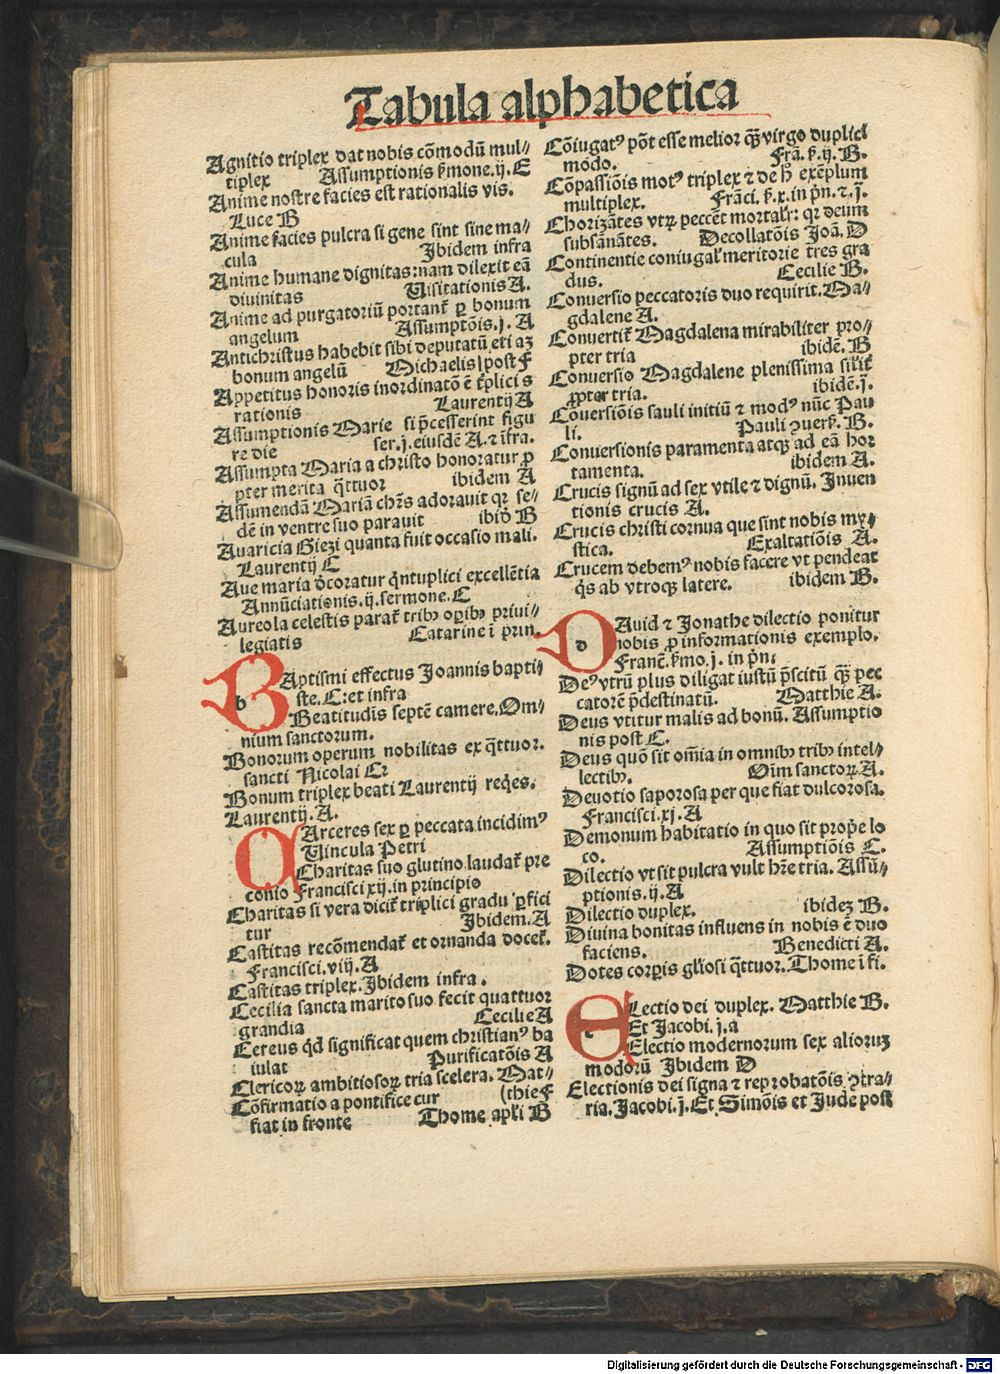 Tabula alphabetica
Agnitio triplex dat nobis cōmodū mul⸗
tiplex Assumptionis ẜmone.ij. E
Anime nostre facies est rationalis vis.
Luce B
Anime facies pulcra si gene sint sine ma⸗
cula Ibidem infra
Anime humane dignitas: nam dilexit eā
diuinitas Uisitationis A.
Anime ad purgatoriū portant᷑ ꝑ bonum
angelum Assumptōis.j. A
Antichristus habebit sibi deputatū eti aʒ
bonum angelū Michaelis post F
Appetitus honoris inordinatō ē ẜplici s
rationis Laurentij A
Assumptionis Marie si p̄cesserint figu
re die ser.j. eiusdē A. ⁊ īfra.
Assumpta Maria a christo honoratur ꝓ
pter merita q̄ttuor ibidem A
Assumendā Mariā chr̄s adorauit qꝛ se⸗
dē in ventre suo parauit ibid̄ B
Auaricia Giezi quanta fuit occasio mali.
Laurentij C
Aue maria d̄coratur q̄ntuplici excellētia
Annūciationis.ij. sermone. C
Aureola celestis parat᷑ tribꝰ oꝑibꝰ priui⸗
legiatis Catarine ī prin.
b
BAptismi effectus Joannis bapti⸗
ste. C: et infra
Beatitudīs septē camere. Om⸗
nium sanctorum.
Bonorum operum nobilitas ex q̄ttuor.
sancti Nicolai Er
Bonum triplex beati Laurentij reqͥes.
Laurentij. A.
CArceres sex ꝑ peccata incidimꝰ
Uincula Petri
Charitas suo glutino laudat᷑ pre
conio Francisci xij. in principio
Charitas si vera dicit᷑ triplici gradu ꝑfici
tur Ibidem. A
Castitas recōmendat᷑ et ornanda docet᷑.
Francisci. viij. A
Castitas triplex. Ibidem infra.
Cecilia sancta marito suo fecit quattuor
grandia Cecilie A
Cereus qd̄ significat quem christianꝰ ba
iulat Purificatōis A
Clericoꝝ ambitiosoꝝ tria scelera. Mat⸗
Cōfirmatio a pontifice cur (thie F
fiat in fronte Thome apl̄i B
Cōiugatꝰ pōt esse melior qᷓꝫ virgo duplici
modo. Frā. ẜ. ij. B.
Cōpassiōis motꝰ triplex ⁊ de h̄ exēplum
multiplex. Frāci. ẜ. x. in pn̄. ⁊. j.
Chorizātes vtꝝ peccēt mortalr̄: qꝛ deum
subsānātes. Decollatōis Joā. D
Continentie coniugal᷑ meritorie tres gra
dus. Cecilie B.
Conuersio peccatoris duo requirit. Ma⸗
gdalene A.
Conuertit᷑ Magdalena mirabiliter pro⸗
pter tria ibidē. B
Conuersio Magdalene plenissima silīt᷑
ꝓpter tria. ibidē. j.
Cōuersiōis sauli initiū ⁊ modꝰ nūc Pau
li. Pauli ꝯuerẜ. B.
Conuersionis paramenta atqꝫ ad eā hor
tamenta. ibidem A.
Crucis signū ad sex vtile ⁊ dignū. Inuen
tionis crucis A.
Crucis christi cornua que sint nobis my⸗
stica. Exaltatiōis A.
Crucem debemꝰ nobis facere vt pendeat
qͥs ab vtroqꝫ latere. ibidem B.
d
DAuid ⁊ Jonathe dilectio ponitur
nobis ꝓ informationis exemplo.
Francͥ. ẜmo. j. in pn̄:
Deꝰ vtrū plus diligat iustū p̄scitū qᷓꝫ pec
catorē p̄destinatū. Matthie A.
Deus vtitur malis ad bonū. Assumptio
nis post C.
Deus quō sit om̄ia in omnibꝰ tribꝰ intel⸗
lectibꝰ. Om̄m sanctoꝝ A.
Deuotio saporosa per que fiat dulcorosa.
Francisci. xj. A
Demonum habitatio in quo sit prop̄e lo
co. Assumptiōis C.
Dilectio vt sit pulcra vult hr̄e tria. Assū⸗
ptionis. ij. A
Dilectio duplex. ibideʒ B.
Diuina bonitas influens in nobis ē duo
faciens. Benedicti A.
Dotes corꝑis gl̄iosi q̄ttuor. Thome ī fi.
e
ELectio dei duplex. Matthie B.
Et Jacobi. j. a
Electio modernorum sex alioruʒ
modorū Ibidem D
Electionis dei signa ⁊ reprobatōis ꝯtra⸗
ria. Jacobi. j. Et Simōis et Jude post
Digitalisierung gefördert durch die Deutsche Forschungsgemeinschaft - DFG